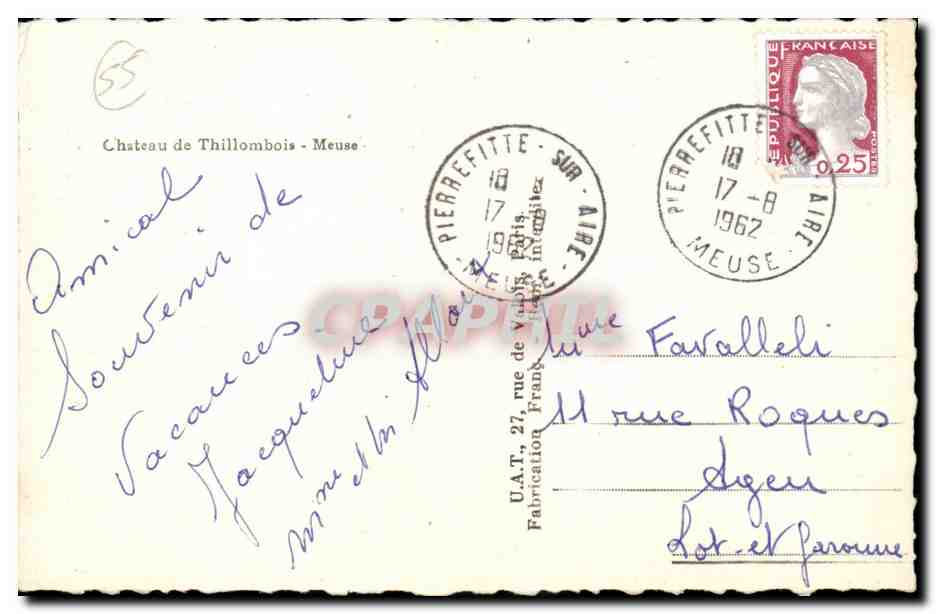 55
Chateau de Thillombois - Meuse
Amical
Souvenir de
Vacances.
Jacqueline
Mme et Mr
PIERREFITTE - SUR - AIRE - MEUSE
18
17 -8
1962
PIERREFITTE - SUR - AIRE - MEUSE
18
17 -8
1962
REPUBLIQUE FRANÇAISE
POSTES
0,25
U.A.T., 27, rue de Valois, Paris.
Fabrication Franç. Repr. interdites
CPAPHIL
Mme Favalleli
11 rue Roques
Agen
Lot-et-Garonne